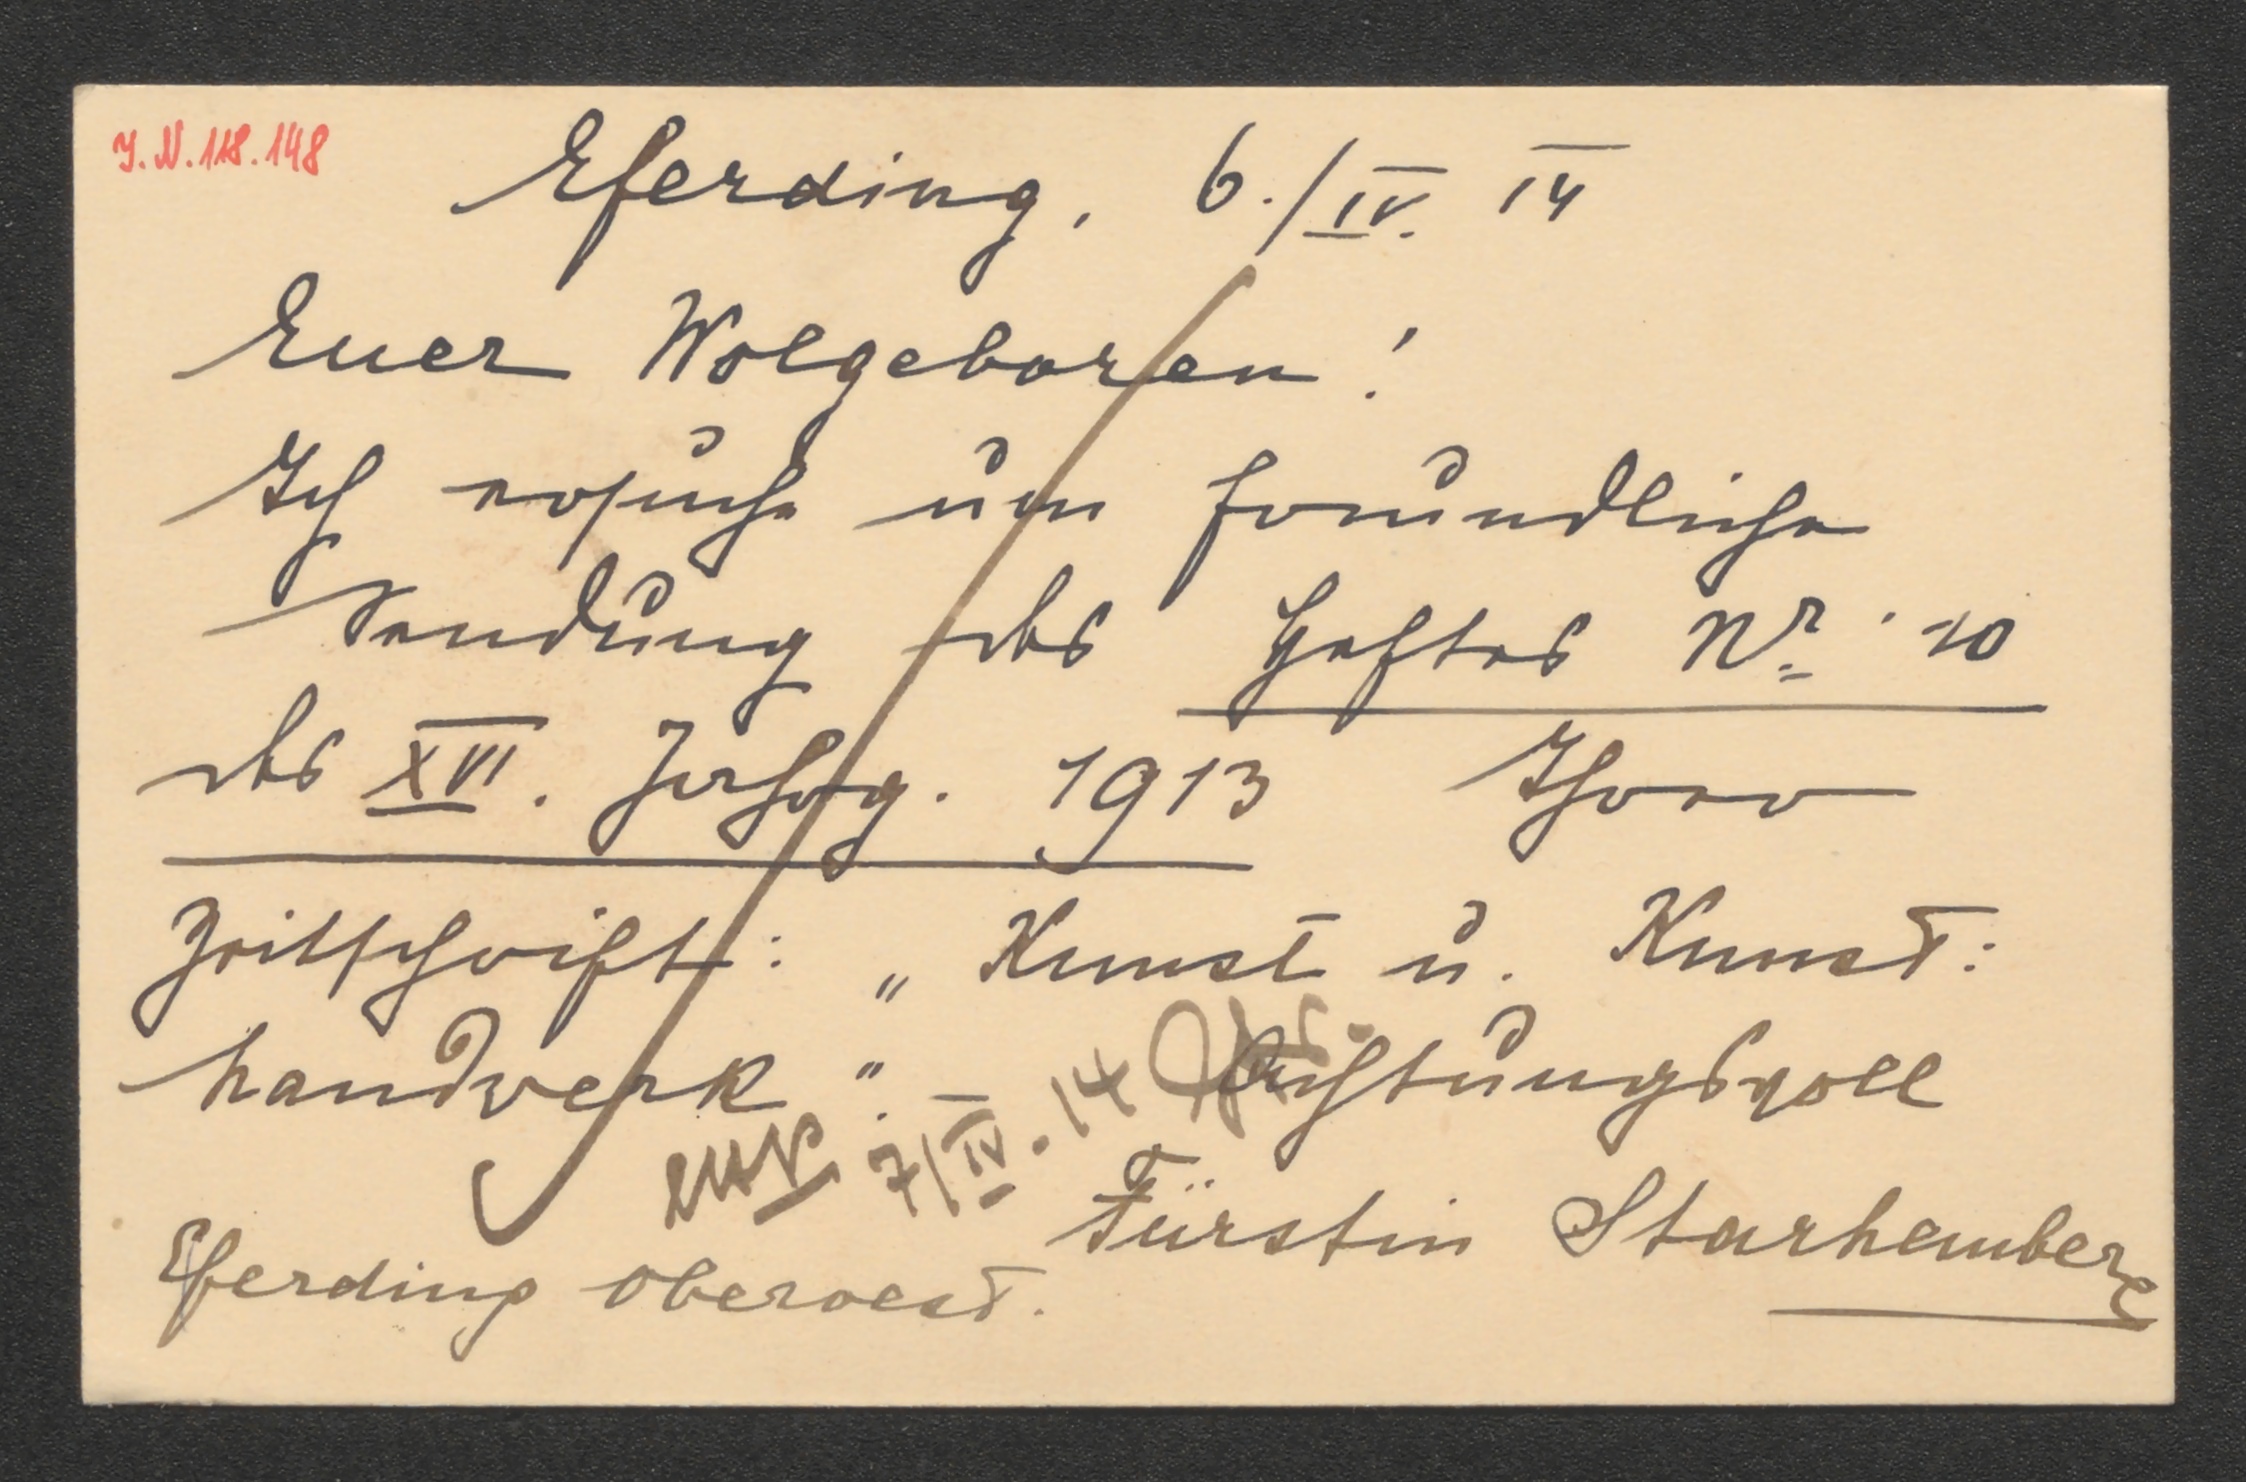 J. N. 118.148
Eferding, 6./IV. 14
Euer Wolgeboren!
Ich ersuche um freundliche
Sendung des Heftes Nr. 10
des XVI. Jahrg. 1913 Ihrer
Zeitschrift: „Kunst u. Kunst:
handwerk".
7/IV. 14
Achtungsvoll
Fürstin Starhemberg
Eferding Oberoest.